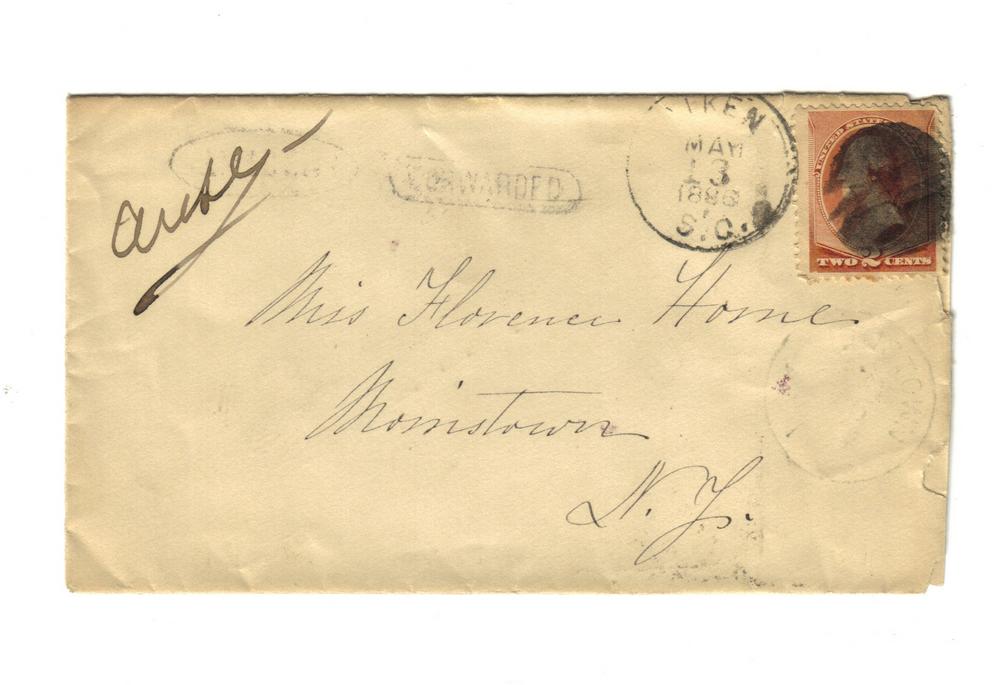 AIKEN
MAY
13
1886
S.C.
UNITED STATES
TWO 2 CENTS
FORWARDED
Miss Florence Home
Morristown
N. J.